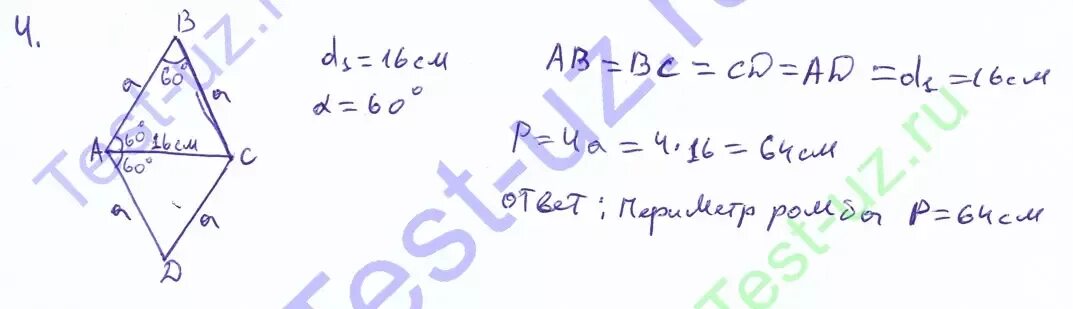 4.
B
60°
a
a
A
60°
16 см
60°
C
a
a
D
d₁ = 16 см
α = 60°
AB = BC = CD = AD = d₁ = 16 см
P = 4a = 4·16 = 64 см
ответ: Периметр ромба P = 64 см
Test-uz.ru
Test-uz.ru
Test-uz.ru